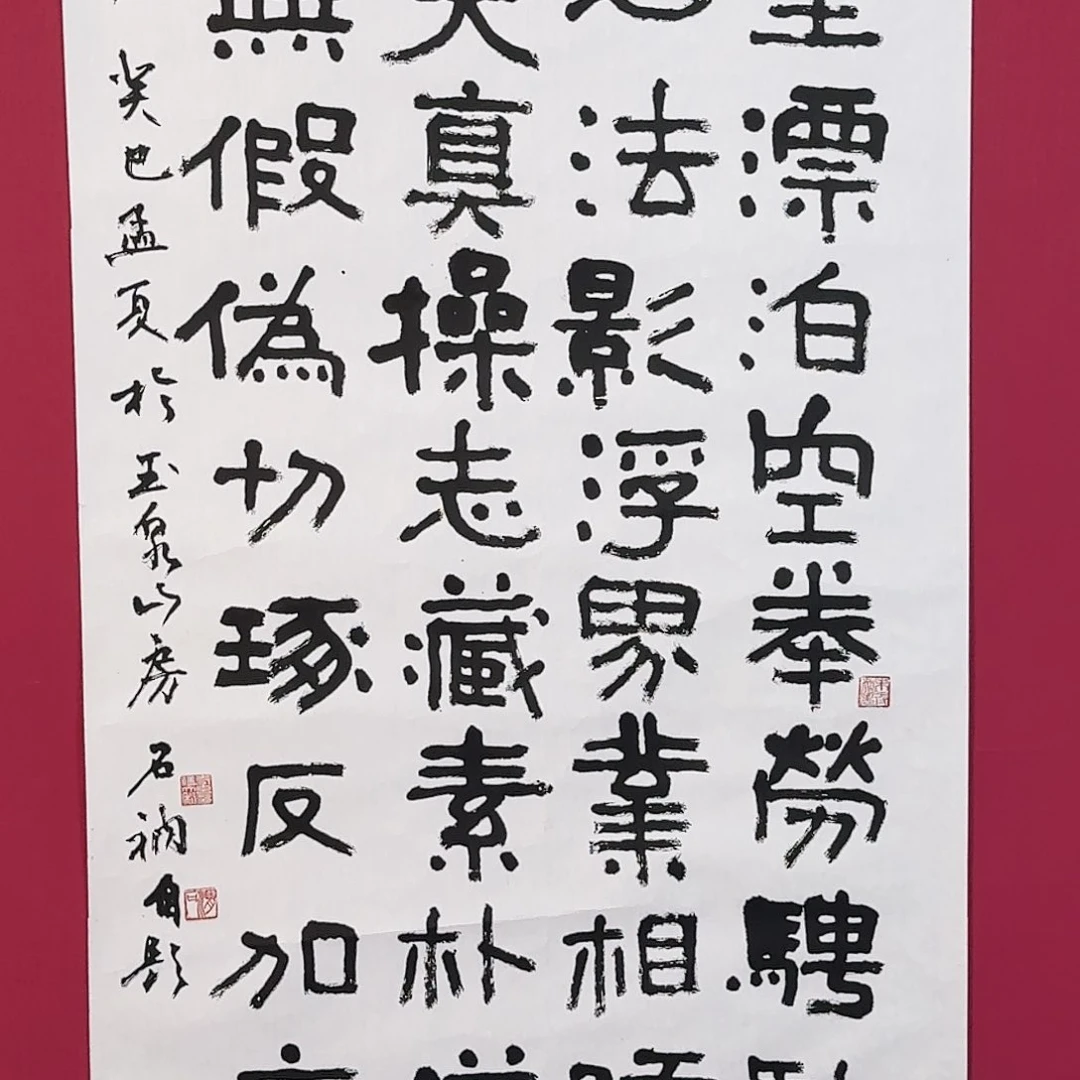 漂泊空拳勞騁
法影浮界業相
真操志藏素朴
無假偽切琢反加
癸巳孟夏於玉泉山房 石衲自題